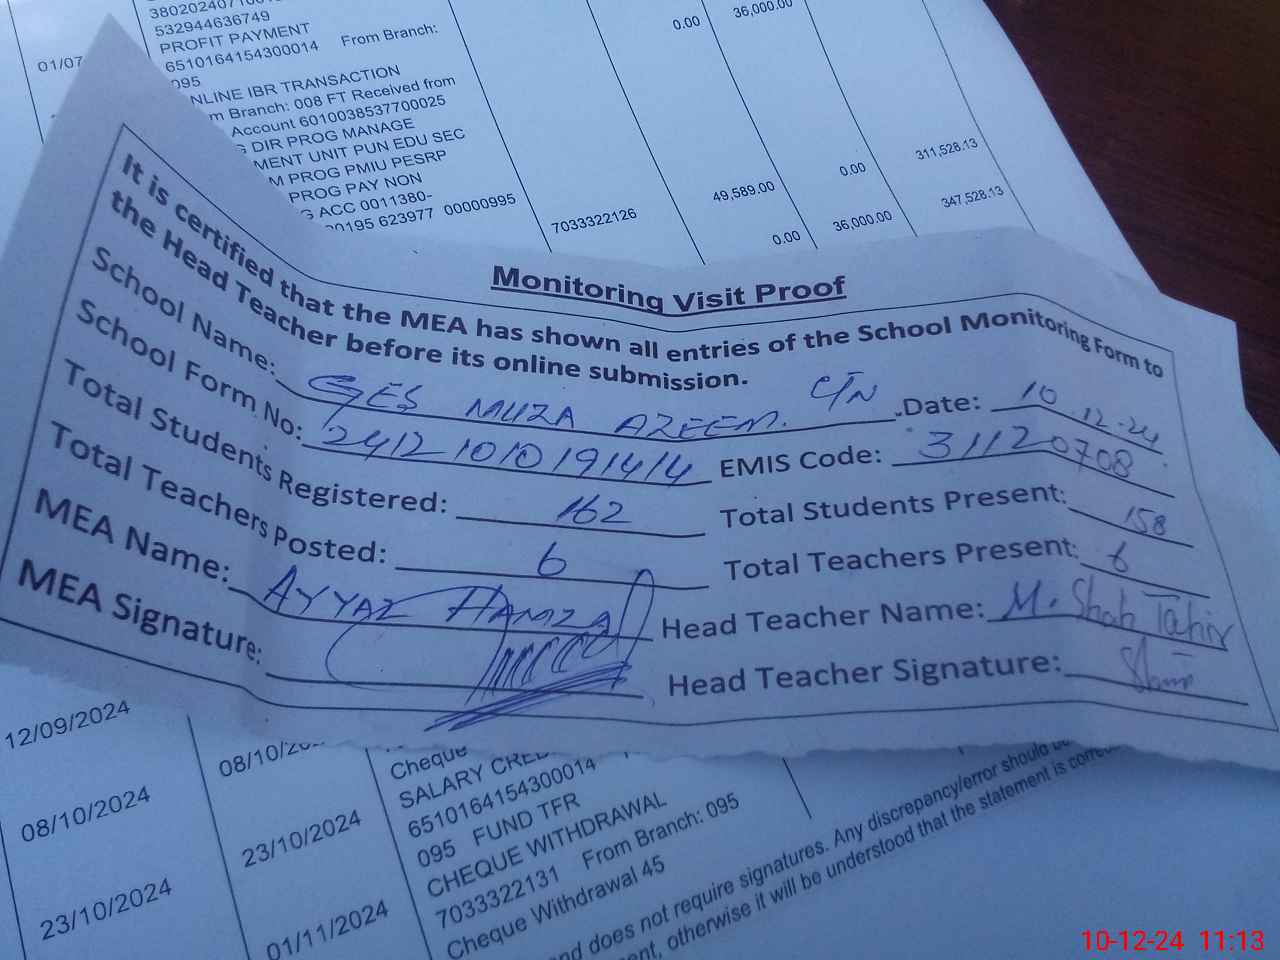 532944636749
PROFIT PAYMENT
6510164154300014 From Branch:
095
0.00 36,000.00
01/07
NLINE IBR TRANSACTION
m Branch: 008 FT Received from
Account 6010038537700025
DIR PROG MANAGE
MENT UNIT PUN EDU SEC
M PROG PMIU PESRP
PROG PAY NON
G ACC 0011380-
00195 623977 00000995
7033322126 49,589.00 0.00 311,528.13
0.00 36,000.00 347,528.13
Monitoring Visit Proof
It is certified that the MEA has shown all entries of the School Monitoring Form to
the Head Teacher before its online submission.
School Name: GES MURZA AZEEM. CTN .Date: 10.12.24
School Form No: 24121010191414 EMIS Code: 31120708
Total Students Registered: 162 Total Students Present: 158
Total Teachers Posted: 6 Total Teachers Present: 6
MEA Name: AYYAZ HAMZA Head Teacher Name: M. Shah Tahir
MEA Signature: Head Teacher Signature:
12/09/2024
08/10/2024
23/10/2024
08/10/20
23/10/2024
01/11/2024
Cheque
SALARY CRED
6510164154300014
095 FUND TFR
CHEQUE WITHDRAWAL
7033322131 From Branch: 095
Cheque Withdrawal 45
nd does not require signatures. Any discrepancy/error should be
ent, otherwise it will be understood that the statement is correct
10-12-24 11:13